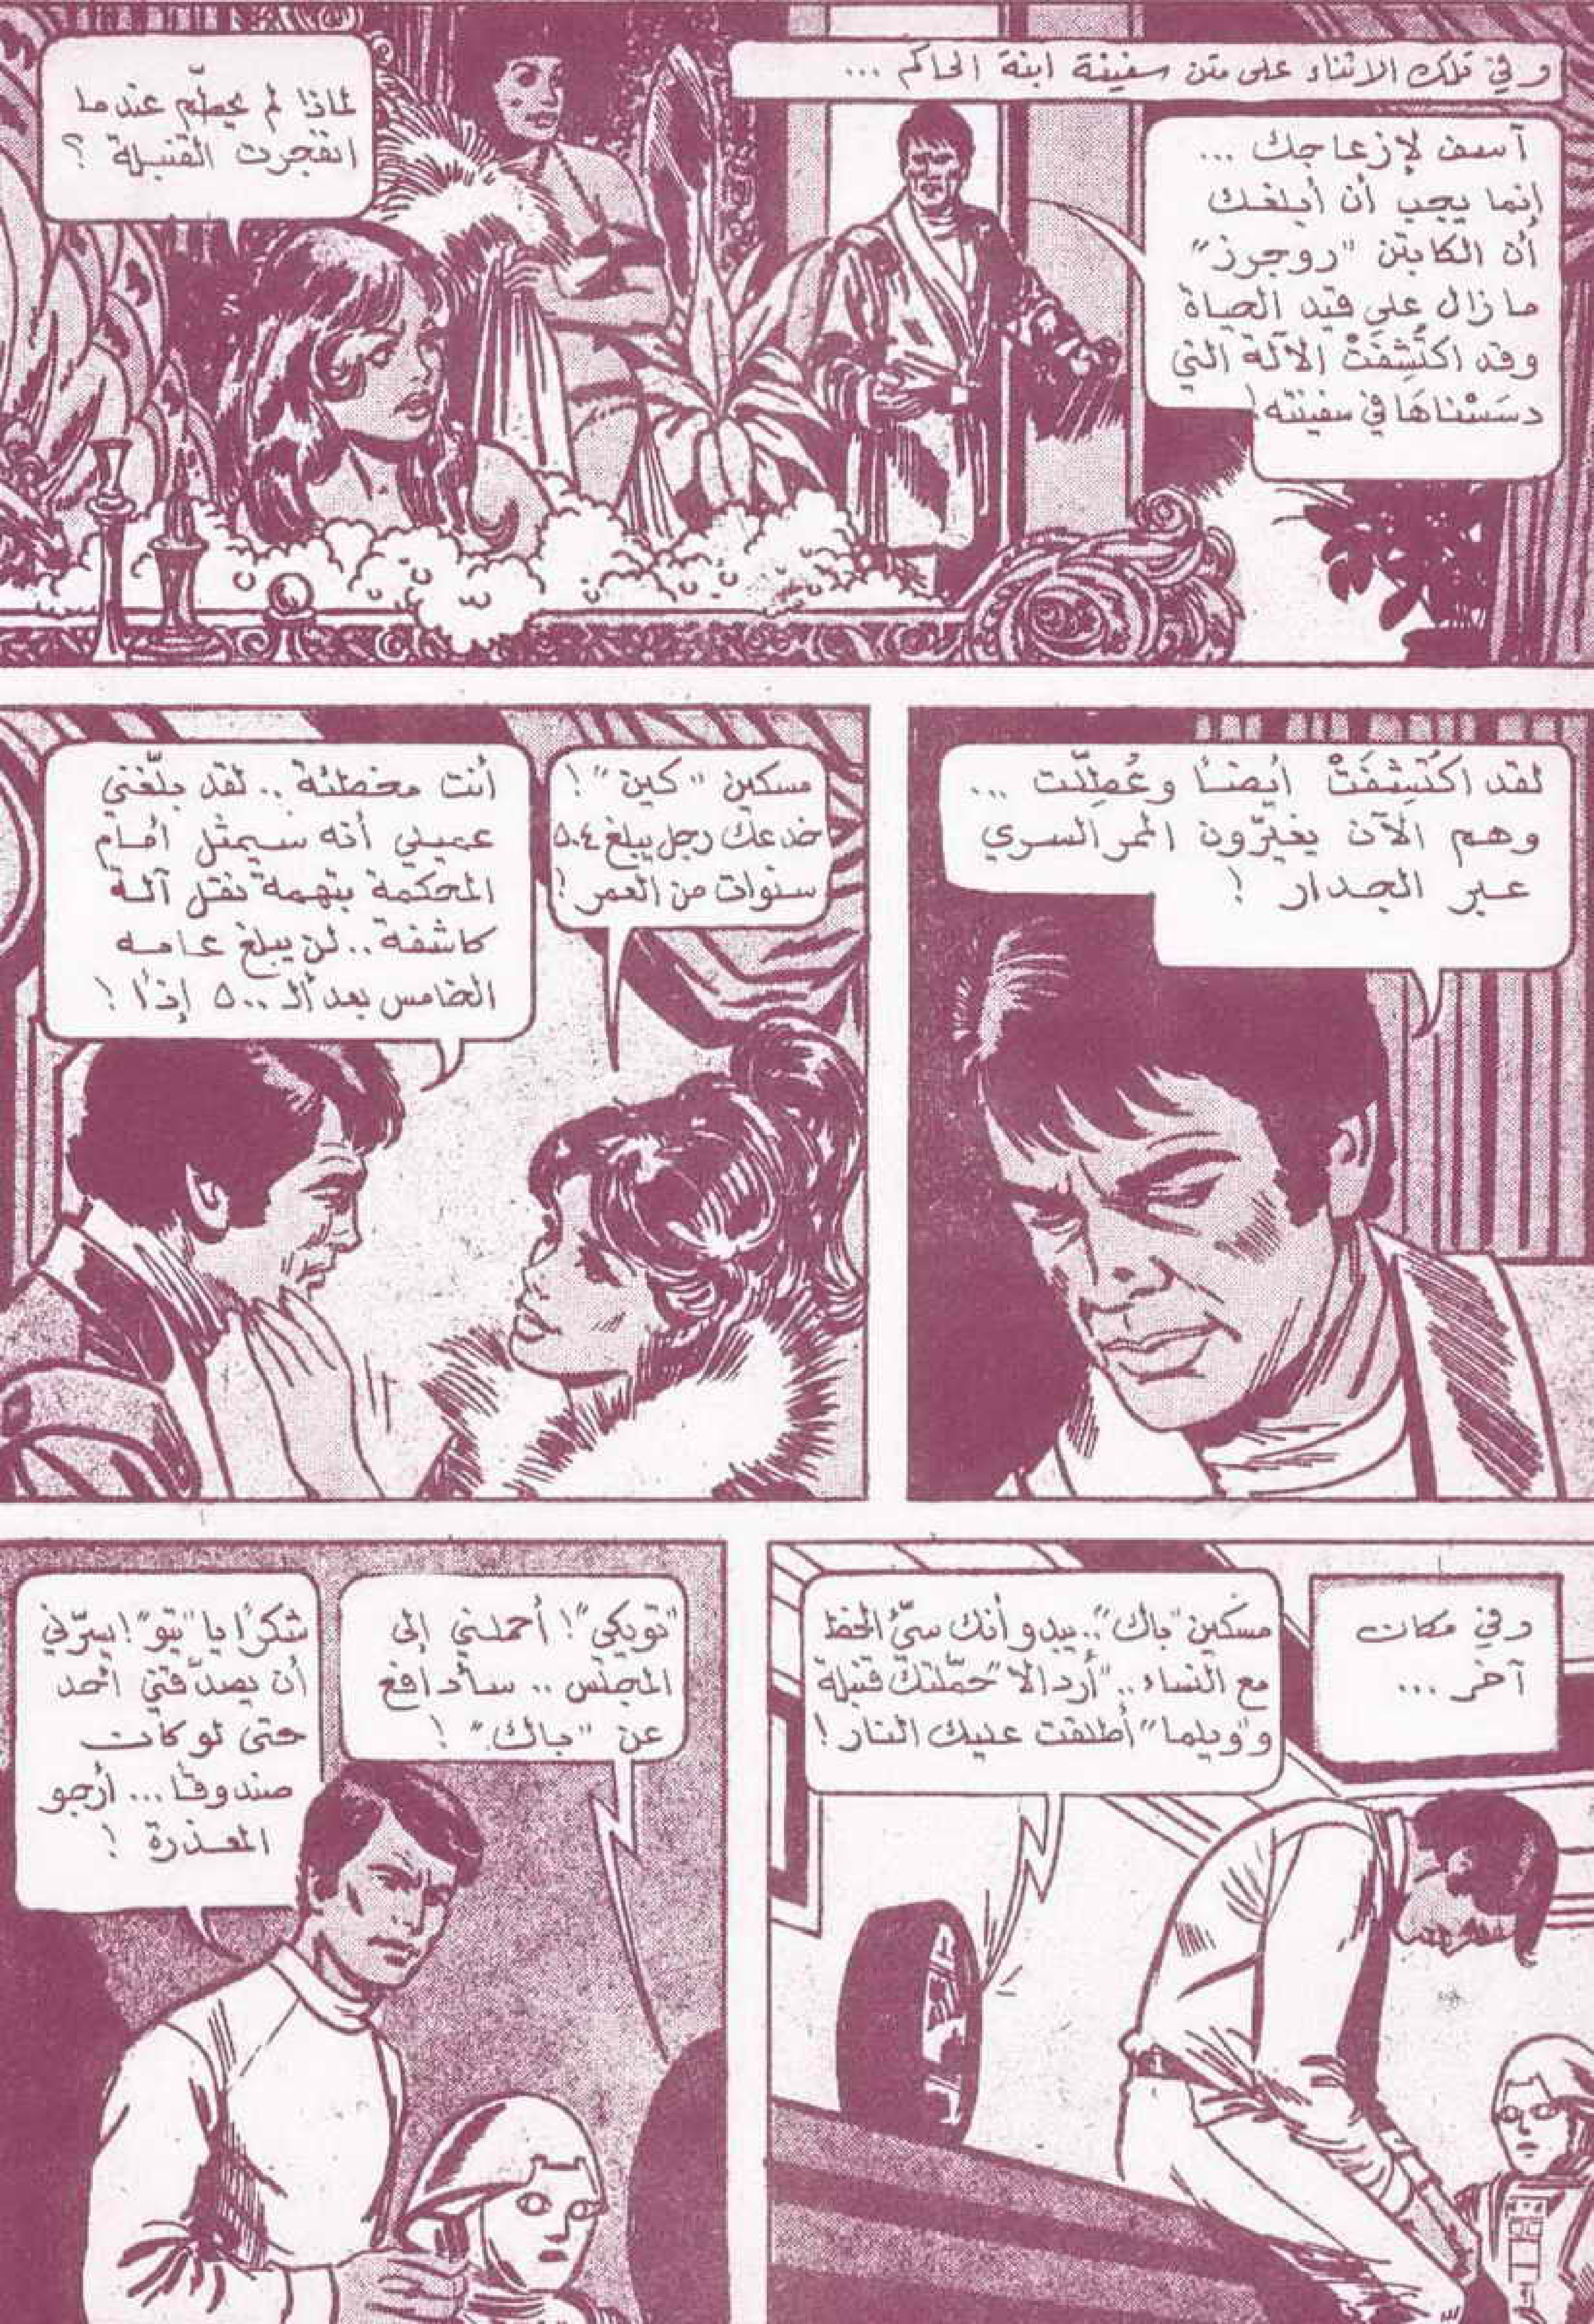 و في تلك الاثناء على متن سفينة ابنة الحاكم ...
آسف لإزعاجك ...
إنما يجب أن أبلغك
أن الكابتن "روجرز"
ما زال على قيد الحياة
وقد اكتُشِفَتْ الآلة التي
دسَسْناهَا في سفينته!
لماذا لم يحطّم عندما
انفجرت القنبلة ؟
لقد اكُتشِفَتْ أيضاً وعُطِلّت ...
وهم الآن يغيّرون الممر السري
عبر الجدار !
مسكين "كين" !
خدعك رجل يبلغ ٥٠٤
سنوات من العمر !
أنت مخطئة .. لقد بلّغني
عميلي أنه سيمثل أمام
المحكمة بتهمة نقل آلة
كاشفة .. لن يبلغ عامه
الخامس بعد الـ ٥٠٠ إذاً !
وفي مكان
آخر ...
مسكين "باك" .. يبدو أنك سيّء الحظ
مع النساء .. "أردالا" حمّلتك قنبلة
و"ويلما" أطلقت عليك النار !
"تويكي" ! أحملني إلى
المجلس .. سأدافع
عن "باك" !
شكرًا يا "تيو" ! يسرّني
أن يصدّقني أحد
حتى لو كان
صندوقًا ... أرجو
المعذرة !